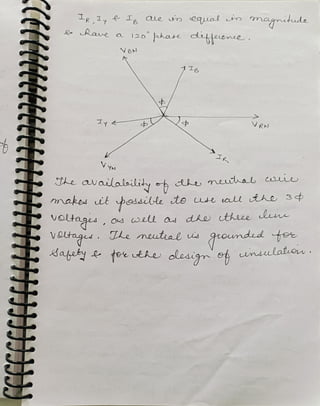 I_R, I_Y & I_B are in equal in magnitude
& have a 120° phase difference.
V_BN
I_B
Φ
I_Y
Φ
Φ
V_RN
V_YN
I_R
The availability of the neutral wire
makes it possible to use all the 3Φ
voltages, as well as the three line
voltages. The neutral is grounded for
safety & for the design of insulation.